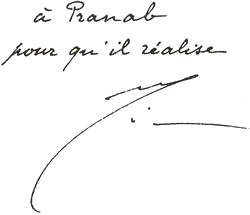 à Pranab
pour qu'il réalise